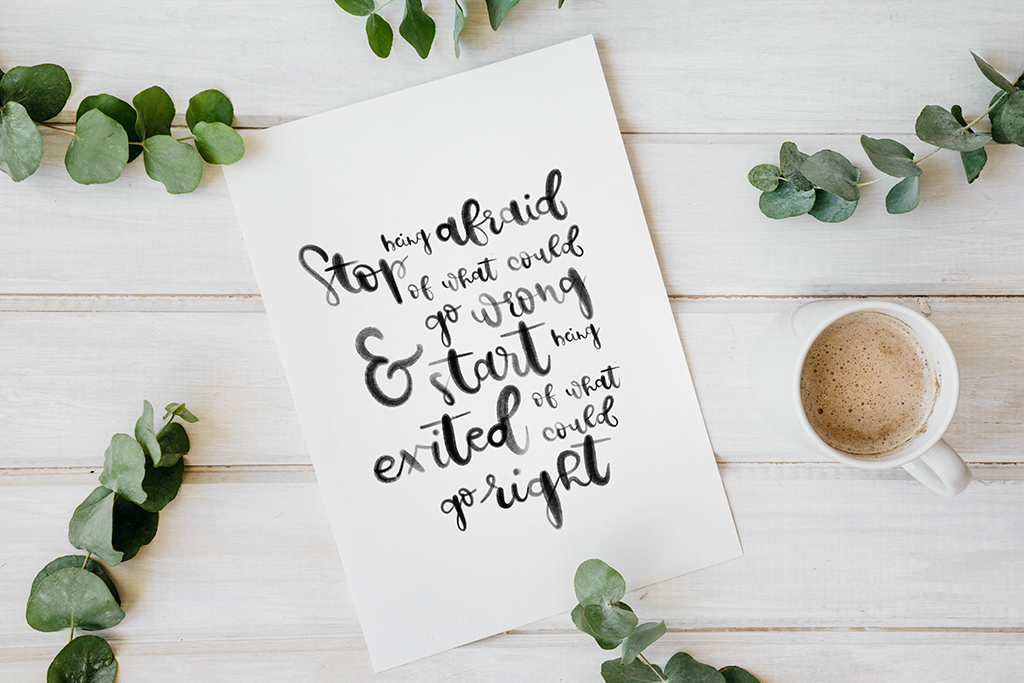 Stop being afraid
of what could
go wrong
& start being
exited of what
could
go right